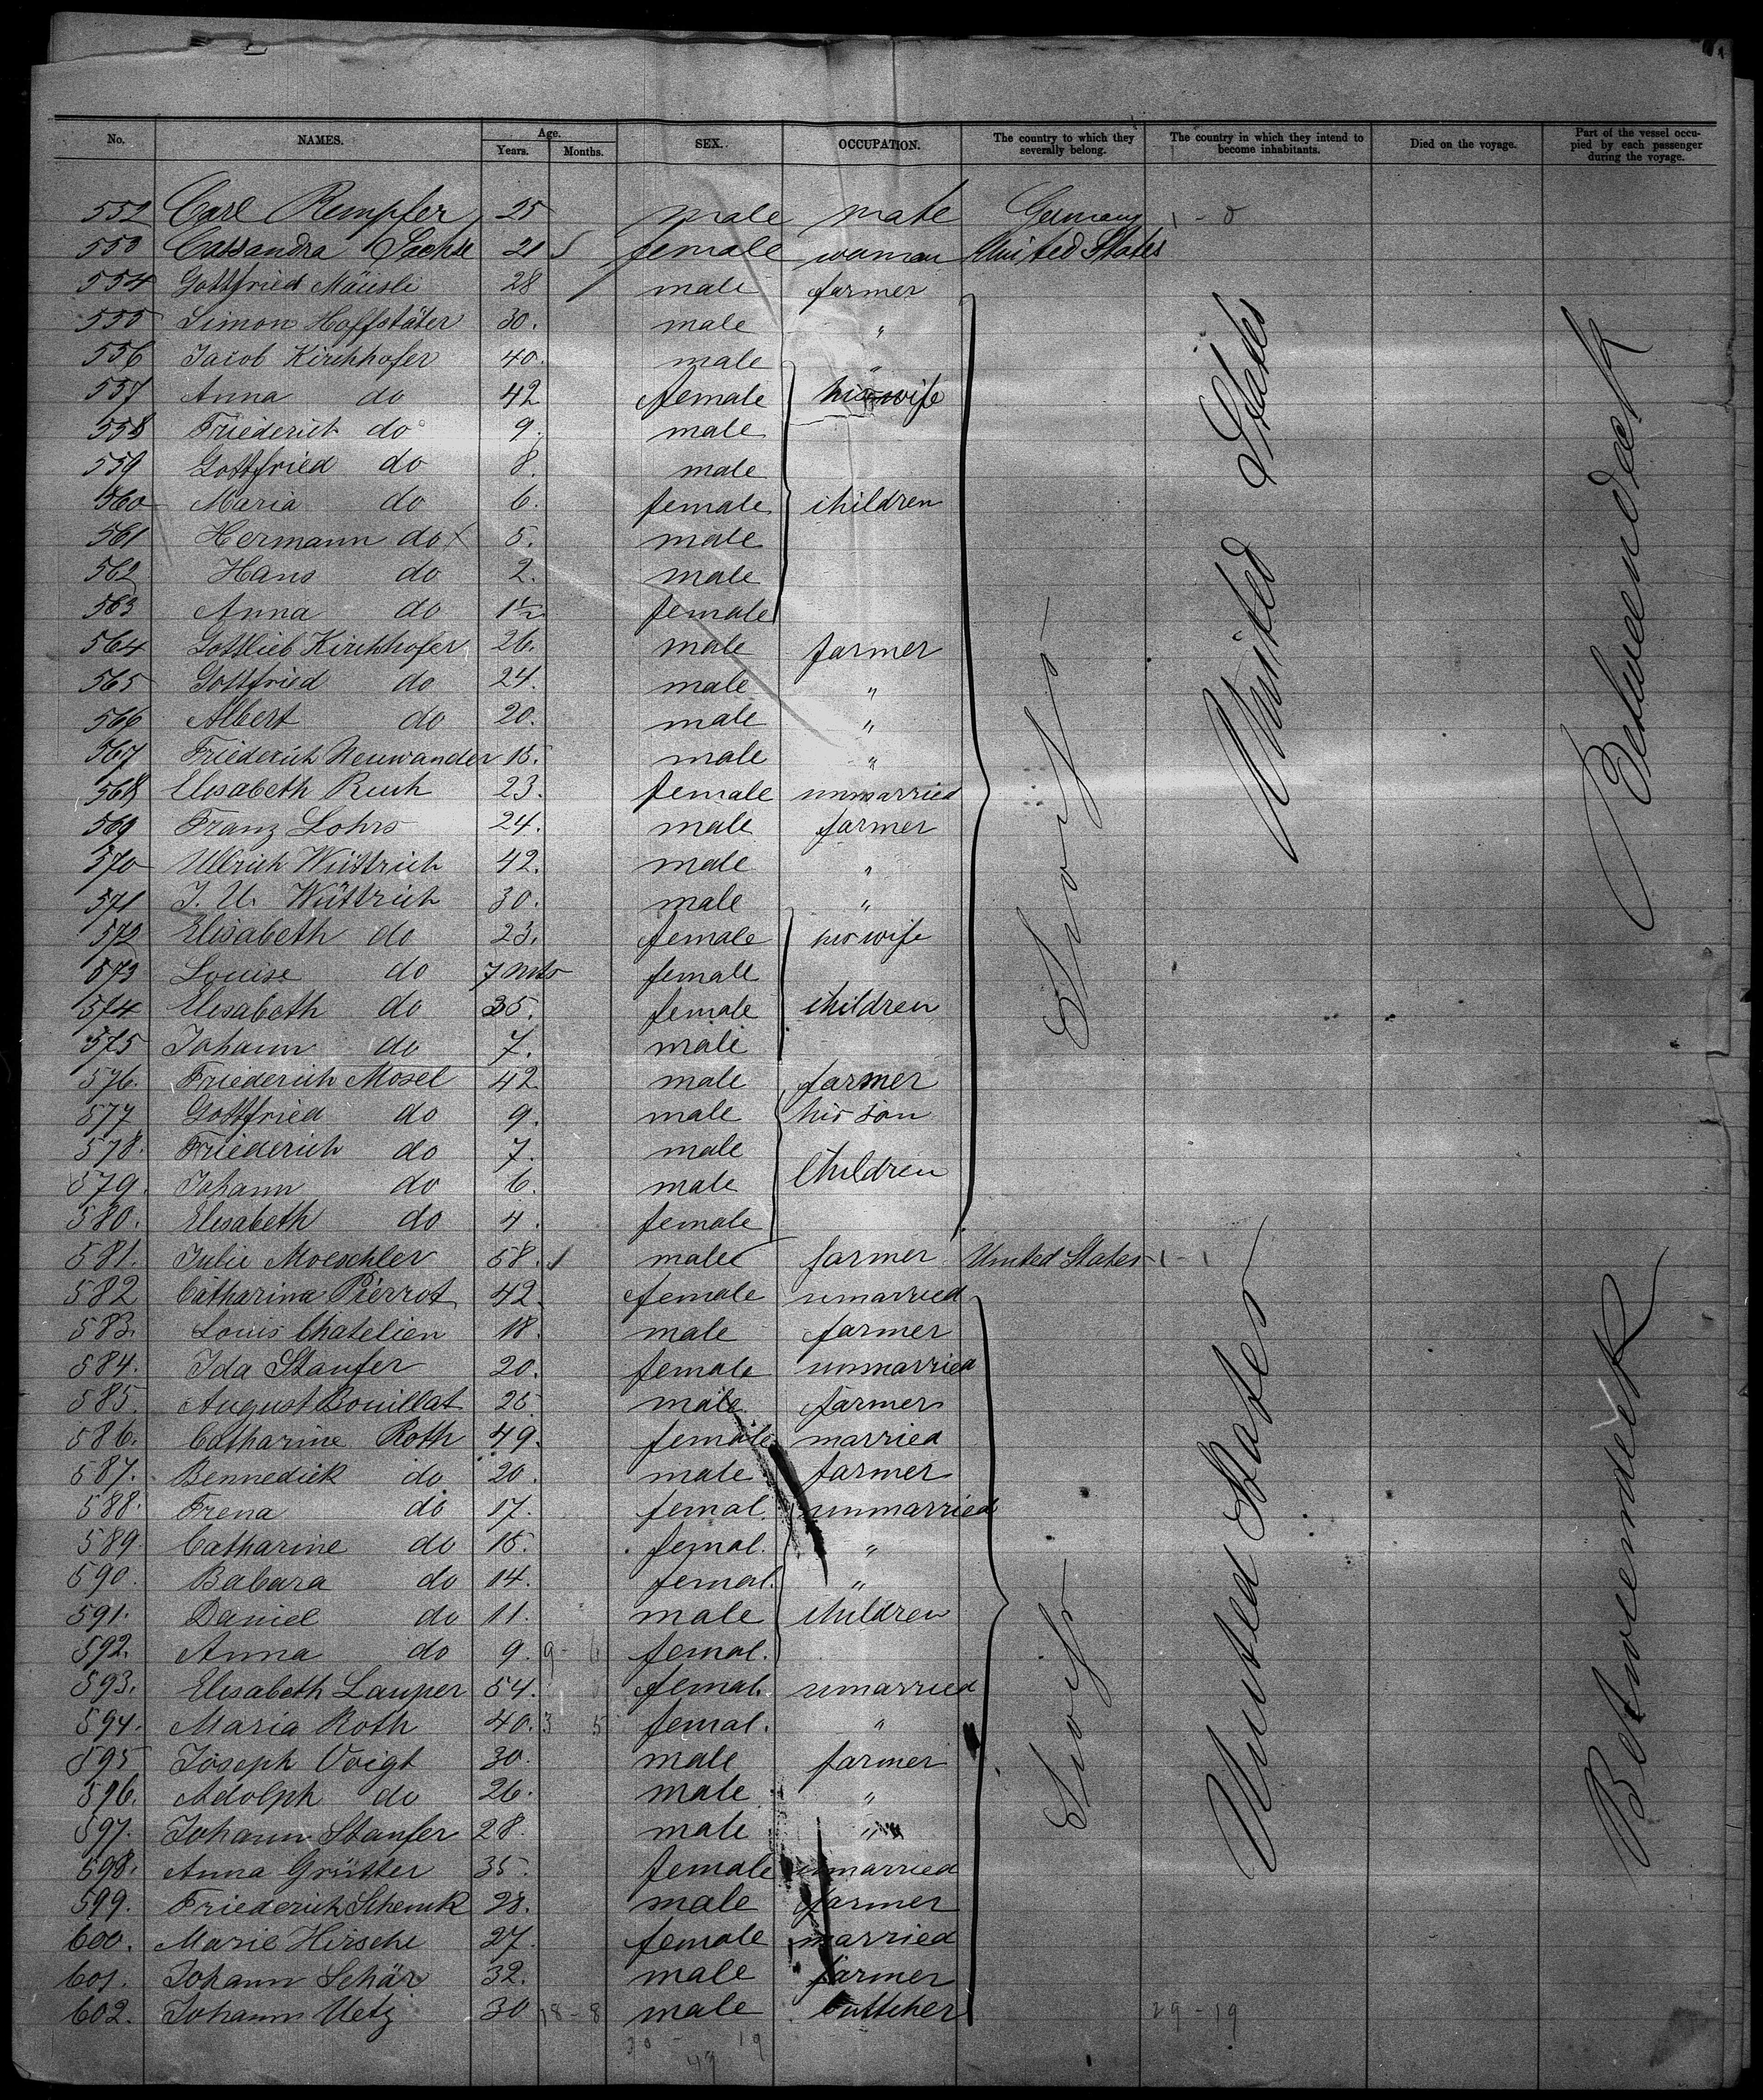 No. NAMES. Age. Years. Months. SEX. OCCUPATION. The country to which they severally belong. The country in which they intend to become inhabitants. Died on the voyage. Part of the vessel occupied by each passenger during the voyage.
552 Carl Rempfer 25 male mate Germany 1 - 0
553 Cassandra Sachse 21 female woman United States
554 Gottfried Mäusli 28 male farmer
555 Simon Hoffstäter 30. male "
556 Jacob Kirchhofer 40. male "
557 Anna do 42 female his wife
558 Friederich do 9. male
559 Gottfried do 8. male
560 Maria do 6. female children
561 Hermann do 5. male
562 Hans do 2. male
563 Anna do 1½ female
564 Gottlieb Kirchhofer 26. male farmer
565 Gottfried do 24. male "
566 Albert do 20. male "
567 Friederich Neuwander 15. male "
568 Elisabeth Ruch 23. female unmarried
569 Franz Lohrs 24. male farmer
570 Ullrich Wüttrich 42. male "
571 J. U. Wüttrich 30. male "
572 Elisabeth do 23. female his wife
573 Louise do 7 mts female
574 Elisabeth do 35. female children
575 Johann do 7. male
576. Friederich Mosel 42 male farmer
577 Gottfried do 9. male his son
578. Friederich do 7. male
579. Johann do 6. male Children
580. Elisabeth do 4. female
Swofs
United States
Betweendeck
581. Julie Moeschler 58. male farmer United States 1 - 1
582 Catharina Pierrot 42 female umarried
583. Louis Chatelien 18. male farmer
584. Ida Staufer 20. female unmarried
585. August Bouillat 25 male farmer
586. Catharine Roth 49. female married
587. Bennedick do 20. male farmer
588. Frena do 17. femal. unmarried
589. Catharine do 15. femal. "
590. Babara do 14. femal. "
591. Daniel do 11. male children
592. Anna do 9. femal.
593. Elisabeth Lauper 54. femal. umarried
594. Maria Roth 40. femal. "
595 Joseph Voigt 30. male farmer
596. Adolph do 26. male "
597. Johann Staufer 28. male "
598. Anna Grütter 35. female unmarried
599. Friederich Schenk 28. male farmer
600. Marie Hirsche 27. female married
601. Johann Schär 32. male farmer
602. Johann Uetz 30 18 - 8 male buttcher 29 - 19
Swofs
United States
Betweendeck
30 - 19
49